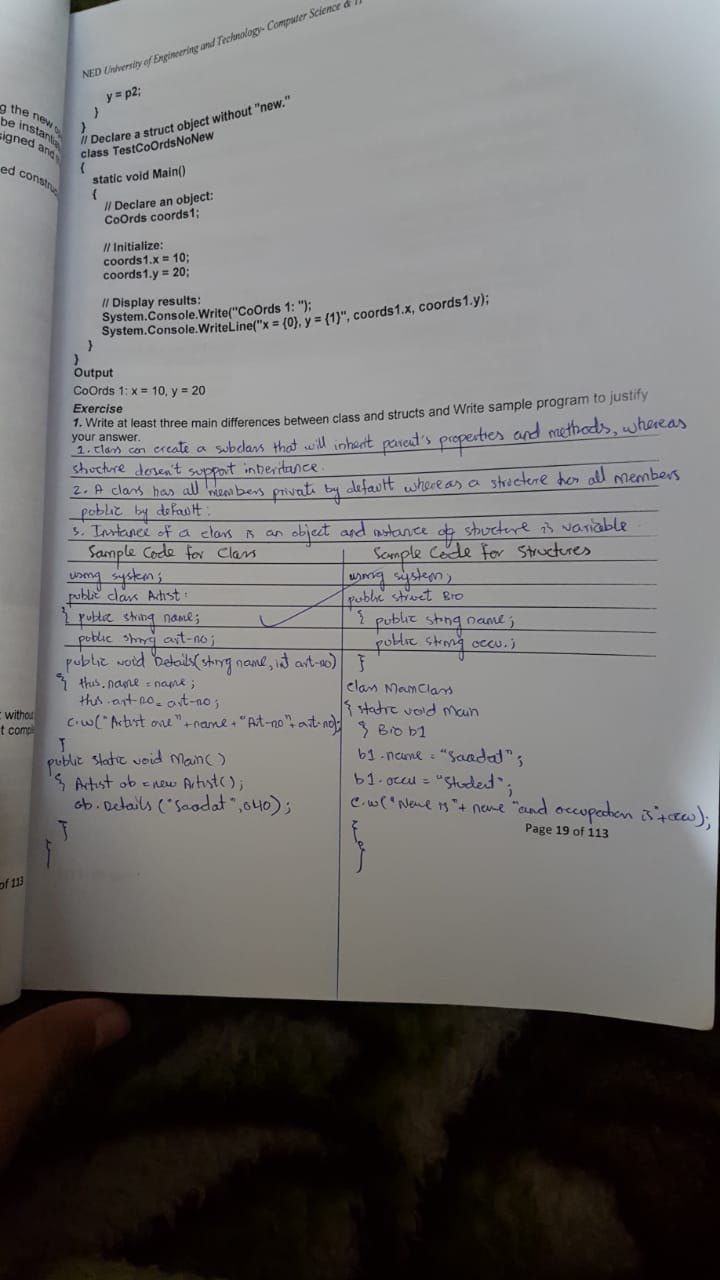 NED University of Engineering and Technology- Computer Science &
y = p2;
}
}
// Declare a struct object without "new."
class TestCoOrdsNoNew
{
static void Main()
{
// Declare an object:
CoOrds coords1;
// Initialize:
coords1.x = 10;
coords1.y = 20;
// Display results:
System.Console.Write("CoOrds 1: ");
System.Console.WriteLine("x = {0}, y = {1}", coords1.x, coords1.y);
}
}
Output
CoOrds 1: x = 10, y = 20
Exercise
1. Write at least three main differences between class and structs and Write sample program to justify
your answer.
1. Class can create a subclass that will inherit parent's properties and methods, whereas
structure doesn't support inheritance.
2. A class has all members private by default whereas a structure has all members
public by default.
3. Instance of a class is an object and instance of structure is variable.
Sample Code for Class
using system;
public class Artist:
{ public string name;
public string art-no;
public void Details(string name, int art-no)
{ this.name = name;
this.art-no = art-no;
c.w("Artist one" + name + "Art-no" + art-no);
}
public static void Main()
{ Artist ob = new Artist();
ob.Details ("Saadat", 040);
}
}
Sample Code for Structures
using system;
public struct Bio
{ public string name;
public string occu.;
}
class MainClass
{ static void main
{ Bio b1
b1.name = "Saadat";
b1.occu = "Student";
c.w("Name is" + name "and occupation is" + occu);
}
}
Page 19 of 113
g the new
be
signed and
ed
without
t
of 113